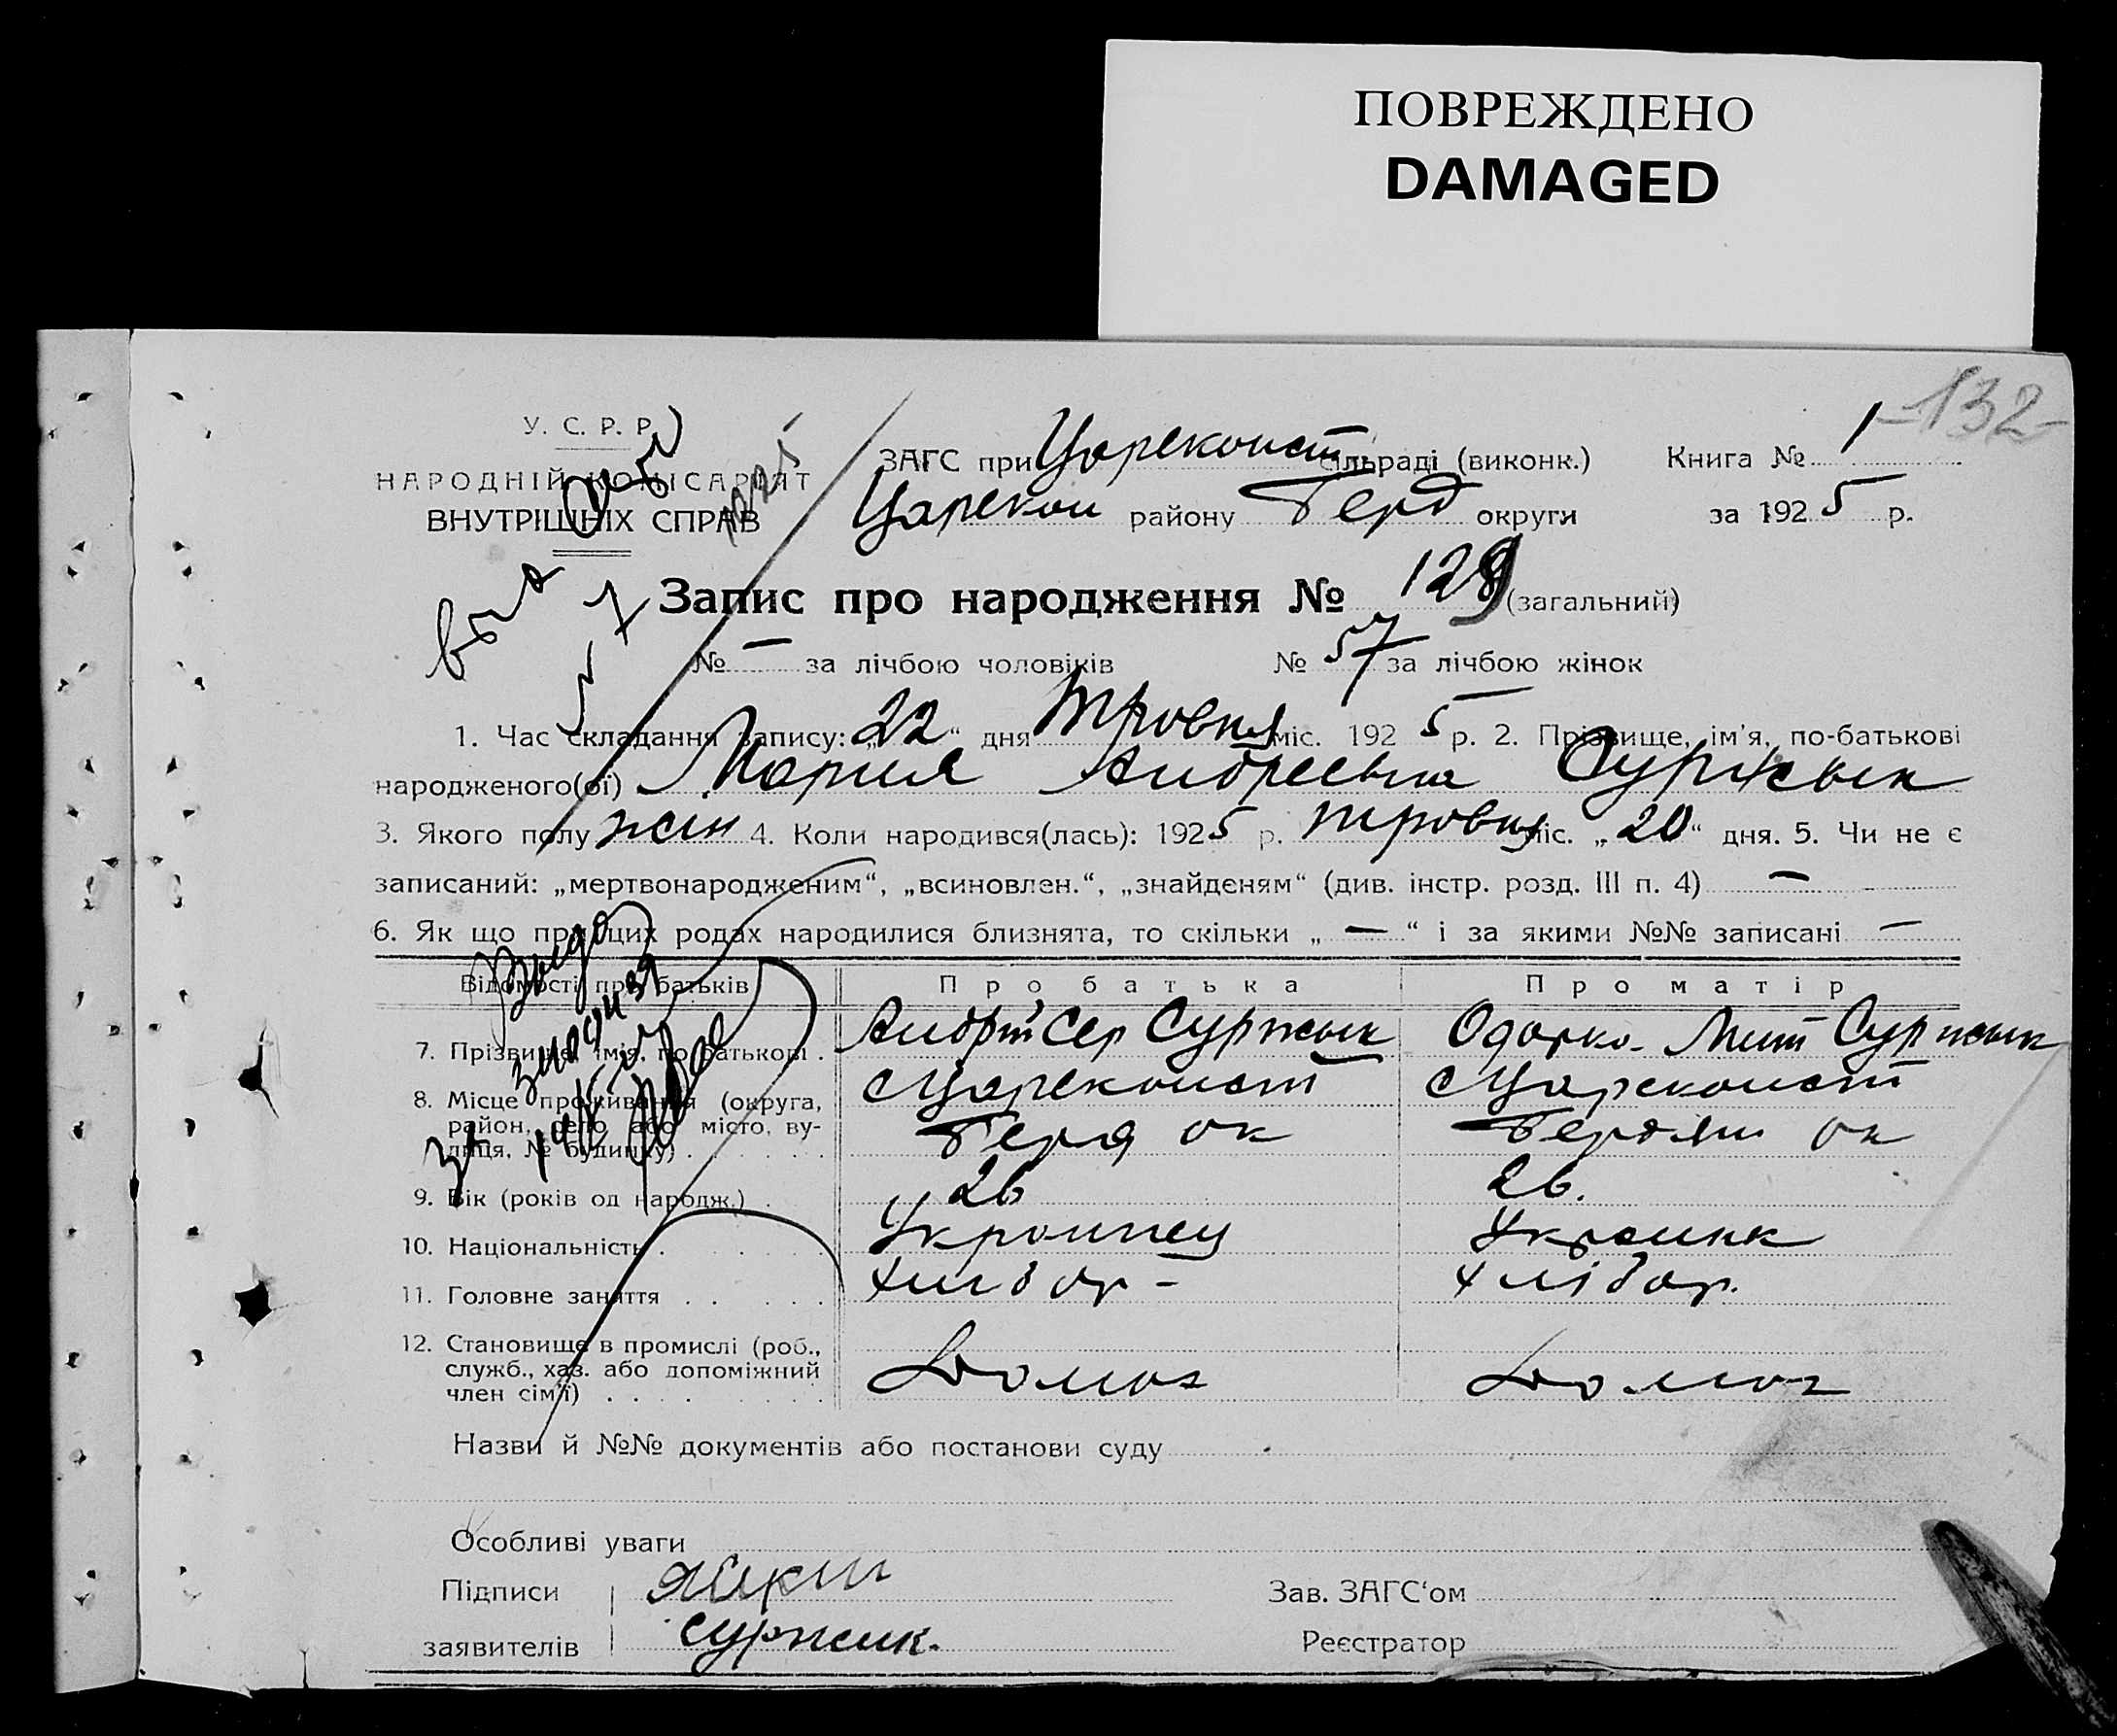 ПОВРЕЖДЕНО
DAMAGED
-132-
У. С. Р. Р.
НАРОДНІЙ КОМІСАРІЯТ
ВНУТРІШНІХ СПРАВ
ЗАГС при Цареконст сільраді (виконк.) Книга № 1
Царекон району Берд округи за 1925 р.
Запис про народження № 129 (загальний)
№ — за лічбою чоловіків № 57 за лічбою жінок
1. Час складання запису: „22“ дня травня міс. 1925 р. 2. Прізвище, ім'я, по-батькові
народженого(ої) Мария Андреевна Суржык
3. Якого полу жін 4. Коли народився(лась): 1925 р. травня міс. „20“ дня. 5. Чи не є
записаний: „мертвонародженим“, „всиновлен.“, „знайденям“ (див. інстр. розд. III п. 4) —
6. Як що при цих родах народилися близнята, то скільки „—“ і за якими №№ записані —
Відомості про батьків Про батька Про матір
7. Прізвище, імія, по батькові . Андрій Сер Суржык Одарка Мит Суржык
8. Місце проживання (округа, Цареконст Цареконст
район, село або місто, ву- Берд ок Бердян ок
лиця, № будинку) . . . . . .
9. Вік (років од народж.) . 26 26.
10. Національність . Украинец Украинк
11. Головне заняття . . . . . хлібор - хлібор.
12. Становище в промислі (роб.,
служб., хаз. або допоміжний
член сімї) . . . . . . . . Домог Домог
Назви й №№ документів або постанови суду
Особливі уваги
Підписи Зав. ЗАГС‘ом
заявителів суржик. Реєстратор